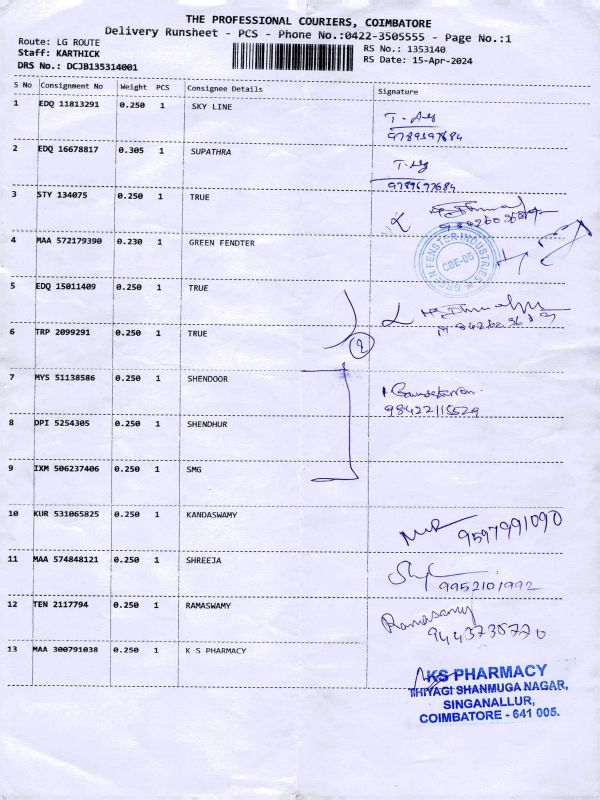 THE PROFESSIONAL COURIERS, COIMBATORE
Delivery Runsheet - PCS - Phone No.:0422-3505555 - Page No.:1
Route: LG ROUTE
Staff: KARTHICK
DRS No.: DCJB135314001
RS No.: 1353140
RS Date: 15-Apr-2024
S No Consignment No Weight PCS Consignee Details Signature
1 EDQ 11813291 0.250 1 SKY LINE
9789697684
2 EDQ 16678817 0.305 1 SUPATHRA
9789697684
3 STY 134075 0.250 1 TRUE
4 MAA 572179390 0.230 1 GREEN FENDTER
GREEN FENSTER INDUSTRIES
CBE-05
5 EDQ 15011409 0.250 1 TRUE
6 TRP 2099291 0.250 1 TRUE
7 MYS 51138586 0.250 1 SHENDOOR
8 DPI 5254305 0.250 1 SHENDHUR
9 IXM 506237406 0.250 1 SMG
10 KUR 531065825 0.250 1 KANDASWAMY
9597991090
11 MAA 574848121 0.250 1 SHREEJA
9952101992
12 TEN 2117794 0.250 1 RAMASWAMY
Ramasamy
9443738770
13 MAA 300791038 0.250 1 K S PHARMACY
KS PHARMACY
THIYAGI SHANMUGA NAGAR,
SINGANALLUR,
COIMBATORE - 641 005.